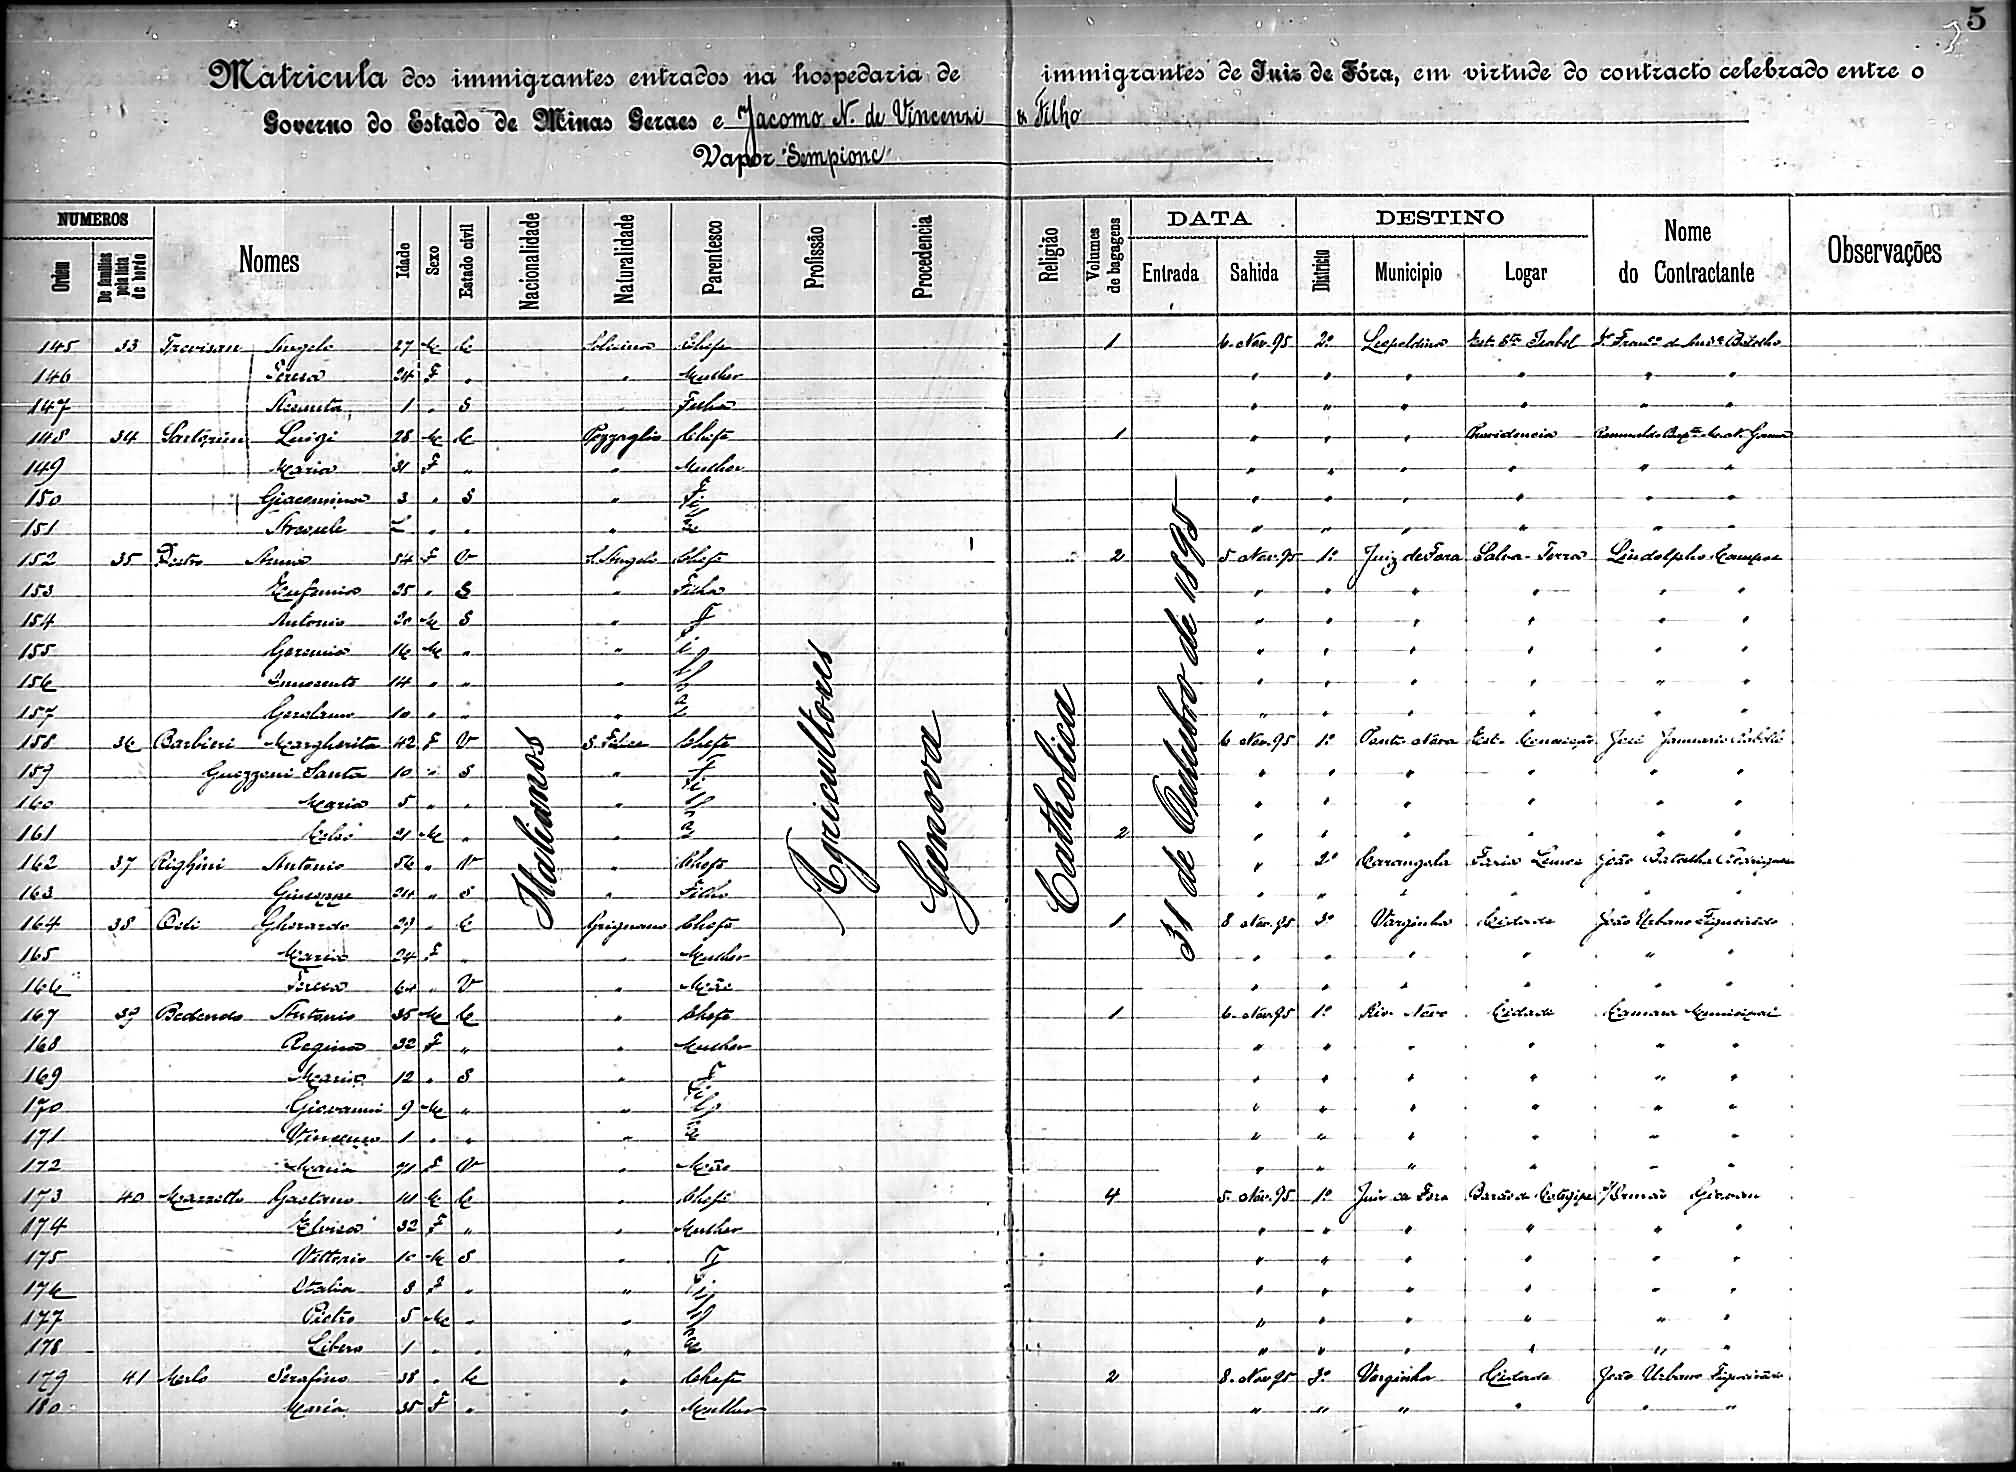 5
Matricula dos immigrantes entrados na hospedaria de immigrantes de Juiz de Fóra, em virtude do contracto celebrado entre o
Governo do Estado de Minas Geraes e Jacomo N. de Vincenzi & Filho
Vapor "Sempione"
NUMEROS Nomes Idade Sexo Estado civil Nacionalidade Naturalidade Parentesco Profissão Procedencia Religião Volumes de bagagens DATA DESTINO Nome do Contractante Observações
Ordem De familias pela lista de bordo Entrada Sahida Districto Municipio Logar
Italianos Agricultores Genova Catholica 31 de Outubro de 1895
145 33 Trevisan Angelo 27 M C Chefe 1 6 Nov. 95 2º Leopoldina Est. Sta Isabel
146 Teresa 24 F " " Mulher " " " " " "
147 Assunta 1 " S " Filha " " " " " "
148 34 Luigi 28 M C Pozzaglio Chefe 1 " " " Providencia
149 Maria 31 F " " Mulher " " " " " "
150 Giacomina 3 " S " " " " " " "
151 " " " " " " " " "
152 35 Destro Anna 54 F V S. Angelo Chefe 2 5 Nov. 95 1º Juiz de Fora Salva-Terra Lindolpho Campos
153 Eufemia 25 " S " Filha " " " " " "
154 Antonio 20 M S " " " " " " "
155 Geremia 16 M " " " " " " " "
156 Innocente 14 " " " " " " " " "
157 Gerolamo 10 " " " " " " " " "
158 36 Barbieri Margherita 42 F V S. Felice Chefe 6 Nov. 95 1º Ponte Nova Est. Conceição José Januario
159 Guezzoni Santa 10 " S " " " " " " "
160 Maria 5 " " " " " " " " "
161 21 M " " 2 " " " " " "
162 37 Righini Antonio 56 " V " Chefe " 2º Carangola Faria Lemos João Batalha Rodrigues
163 Giuseppe 24 " S " Filho " " " " " "
164 38 Gherardo 29 " C Grignano Chefe 1 8 Nov. 95 3º Varginha Cidade João Urbano Figueiredo
165 Maria 24 F " " Mulher " " " " " "
166 Teresa 64 " V " Mãe " " " " " "
167 39 Bedendo Antonio 35 M C " Chefe 1 6 Nov. 95 1º Rio Novo Cidade Camara Municipal
168 Regina 32 F " " Mulher " " " " " "
169 Maria 12 " S " " " " " " "
170 Giovanni 9 M " " " " " " " "
171 Vincenzo 1 " " " " " " " " "
172 Maria 71 F V " Mãe " " " " " "
173 40 Mazzetto Gaetano M C " Chefe 4 5 Nov. 95 1º Juiz de Fora Barão de Cotegipe
174 Elvira 32 F " " Mulher " " " " " "
175 Vittorio 10 M S " " " " " " "
176 Italia 8 F " " " " " " " "
177 Pietro 5 M " " " " " " " "
178 Libero 1 " " " " " " " " "
179 41 Merlo Serafino 38 " C " Chefe 2 8 Nov. 95 3º Varginha Cidade João Urbano Figueiredo
180 Maria 35 F " " Mulher " " " " " "